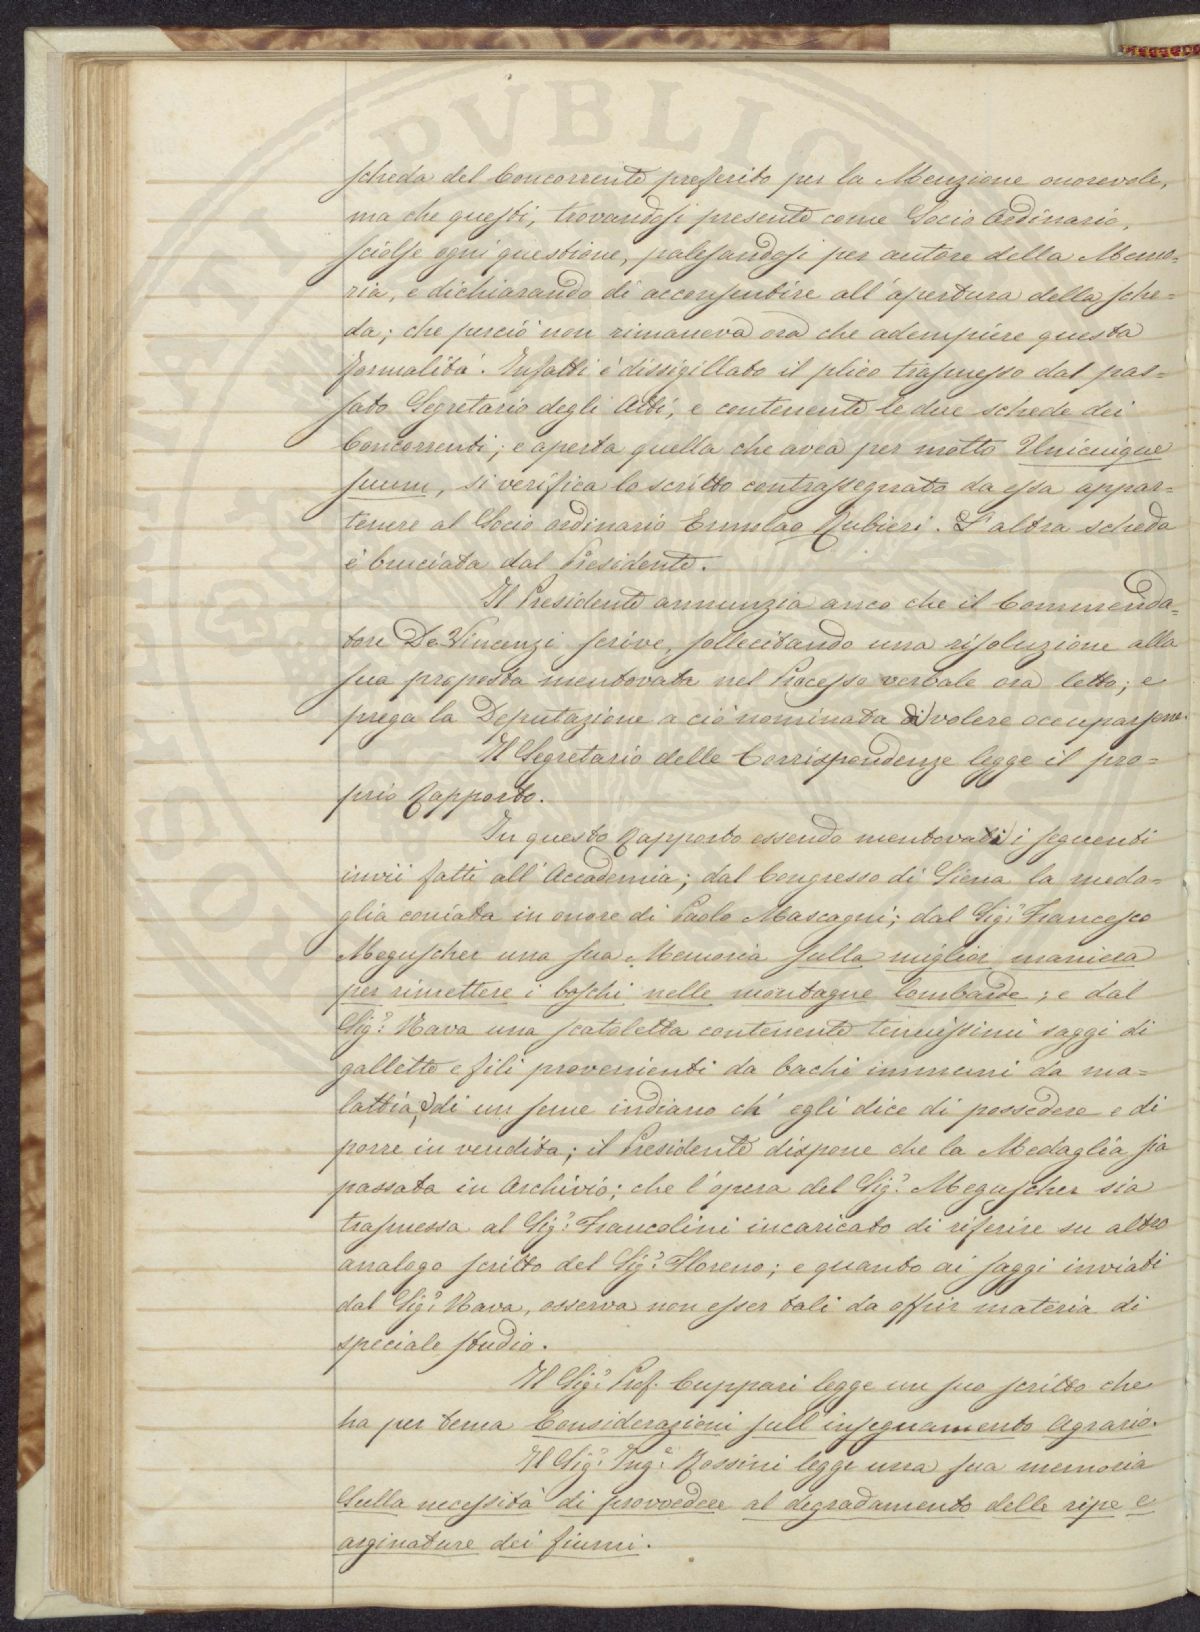 scheda del Concorrente preferito per la Menzione onorevole,
ma che questi, trovandosi presente come Socio Ordinario,
sciolse ogni questione, palesandosi per autore della Memo=
ria, e dichiarando di acconsentire all'apertura della sche=
da; che perciò non rimaneva ora che adempiere questa
formalità. Infatti è dissigillato il plico trasmesso dal pas=
sato Segretario degli Atti, e contenente le due schede dei
Concorrenti; e aperta quella che avea per motto Unicuique
suum, si verifica lo scritto contrassegnato da essa appar=
tenere al Socio ordinario Ermolao Rubieri. L'altra scheda
è bruciata dal Presidente.
Il Presidente annunzia anco che il Commenda=
tore De Vincenzi scrive, sollecitando una risoluzione alla
sua proposta mentovata nel Processo verbale ora letto; e
prega la Deputazione a ciò nominata di volere occuparsene.
Il Segretario delle Corrispondenze legge il pro=
prio Rapporto.
In questo Rapporto essendo mentovati i seguenti
invii fatti all'Accademia; dal Congresso di Siena la meda=
glia coniata in onore di Paolo Mascagni; dal Sig.r Francesco
Meguscher una sua Memoria sulla miglior maniera
per rimettere i boschi nelle montagne lombarde; e dal
Sig.r Rava una scatoletta contenente tenuissimi saggi di
gallette e fili provenienti da bachi immuni da ma=
lattia, e di un seme indiano ch'egli dice di possedere e di
porre in vendita; il Presidente dispone che la Medaglia sia
passata in Archivio; che l'opera del Sig.r Meguscher sia
trasmessa al Sig.r Francolini incaricato di riferire su altro
analogo scritto del Sig.r Floreno; e quanto ai saggi inviati
dal Sig.r Rava, osserva non esser tali da offrir materia di
speciale studio.
Il Sig.r Prof. Cuppari legge un suo scritto che
ha per tema Considerazioni sull'insegnamento Agrario.
Il Sig.r Ing.e Rossini legge una sua memoria
Sulla necessità di provvedere al degradamento delle ripe e
arginature dei fiumi.